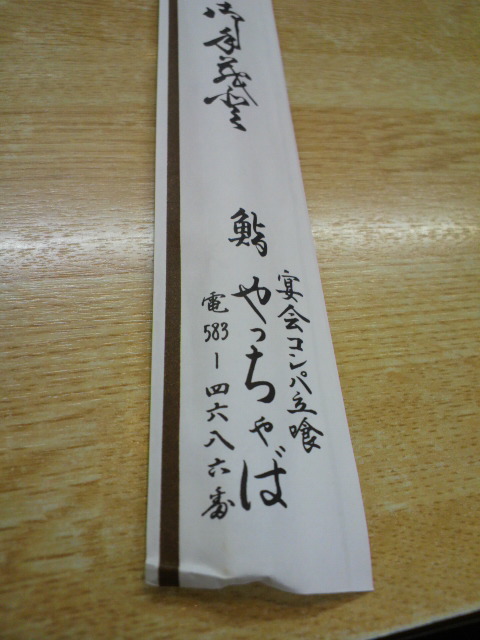 御手茂登
宴会コンパ立喰
鮨 やっちゃば
電583-四六八六番